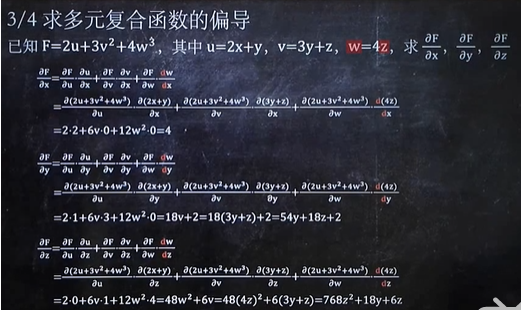 3/4 求多元复合函数的偏导
已知 F=2u+3v²+4w³，其中 u=2x+y，v=3y+z，w=4z，求 ∂F/∂x，∂F/∂y，∂F/∂z
∂F/∂x=∂F/∂u·∂u/∂x+∂F/∂v·∂v/∂x+∂F/∂w·dw/dx
=∂(2u+3v²+4w³)/∂u·∂(2x+y)/∂x+∂(2u+3v²+4w³)/∂v·∂(3y+z)/∂x+∂(2u+3v²+4w³)/∂w·d(4z)/dx
=2·2+6v·0+12w²·0=4
∂F/∂y=∂F/∂u·∂u/∂y+∂F/∂v·∂v/∂y+∂F/∂w·dw/dy
=∂(2u+3v²+4w³)/∂u·∂(2x+y)/∂y+∂(2u+3v²+4w³)/∂v·∂(3y+z)/∂y+∂(2u+3v²+4w³)/∂w·d(4z)/dy
=2·1+6v·3+12w²·0=18v+2=18(3y+z)+2=54y+18z+2
∂F/∂z=∂F/∂u·∂u/∂z+∂F/∂v·∂v/∂z+∂F/∂w·dw/dz
=∂(2u+3v²+4w³)/∂u·∂(2x+y)/∂z+∂(2u+3v²+4w³)/∂v·∂(3y+z)/∂z+∂(2u+3v²+4w³)/∂w·d(4z)/dz
=2·0+6v·1+12w²·4=48w²+6v=48(4z)²+6(3y+z)=768z²+18y+6z